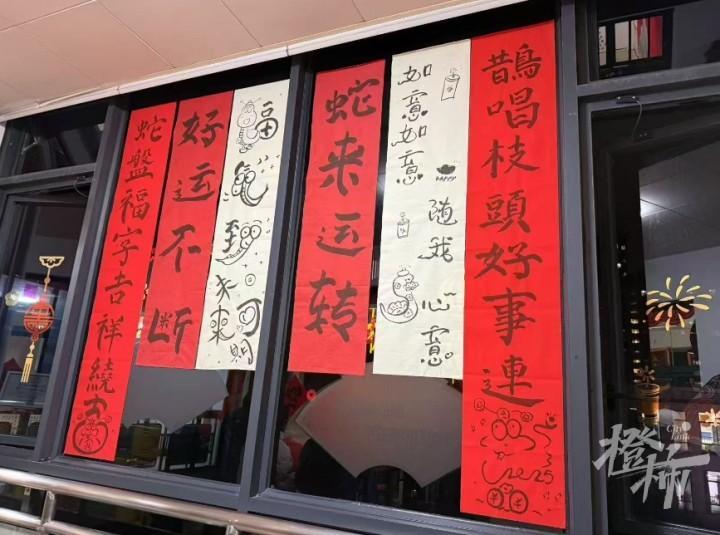 鵲唱枝頭好事連
2025
如意如意
随我心意。
HAPPY
蛇来运转
福到
未來可期
好运不断
蛇盤福字吉祥繞
橙柿